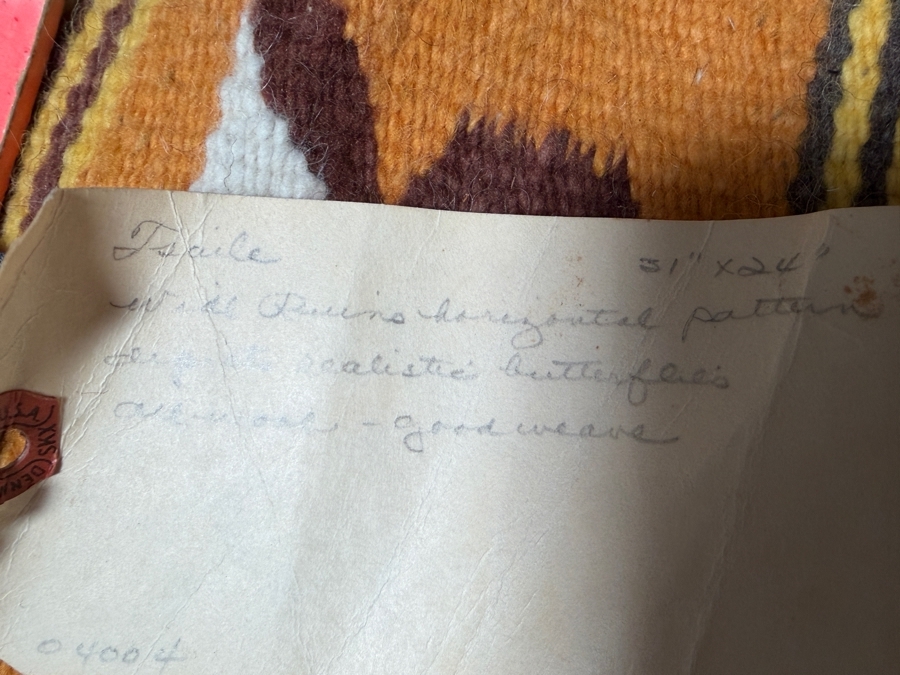 Tsaile 31" x 24"
Wide Ruins horizontal pattern
realistic butterflies
All wool - good weave
04004
U.S.A.
DENN